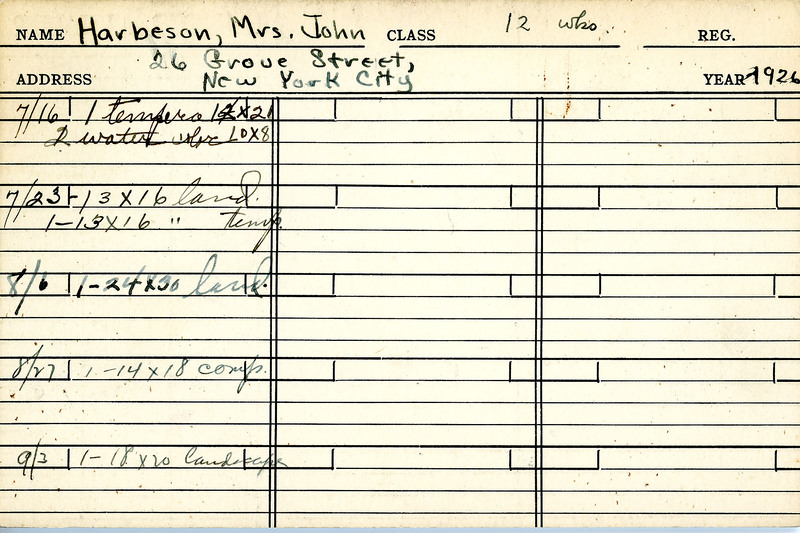 NAME Harbeson, Mrs. John CLASS 12 wks. REG.
26 Grove Street,
ADDRESS New York City YEAR 1926
7/16 1 tempera 18x21
2 water color 10x8
7/23 1-13x16 land.
1-13x16 " temp.
8/6 1-24x30 land.
8/27 1-14x18 comp.
9/3 1-18x20 landscape